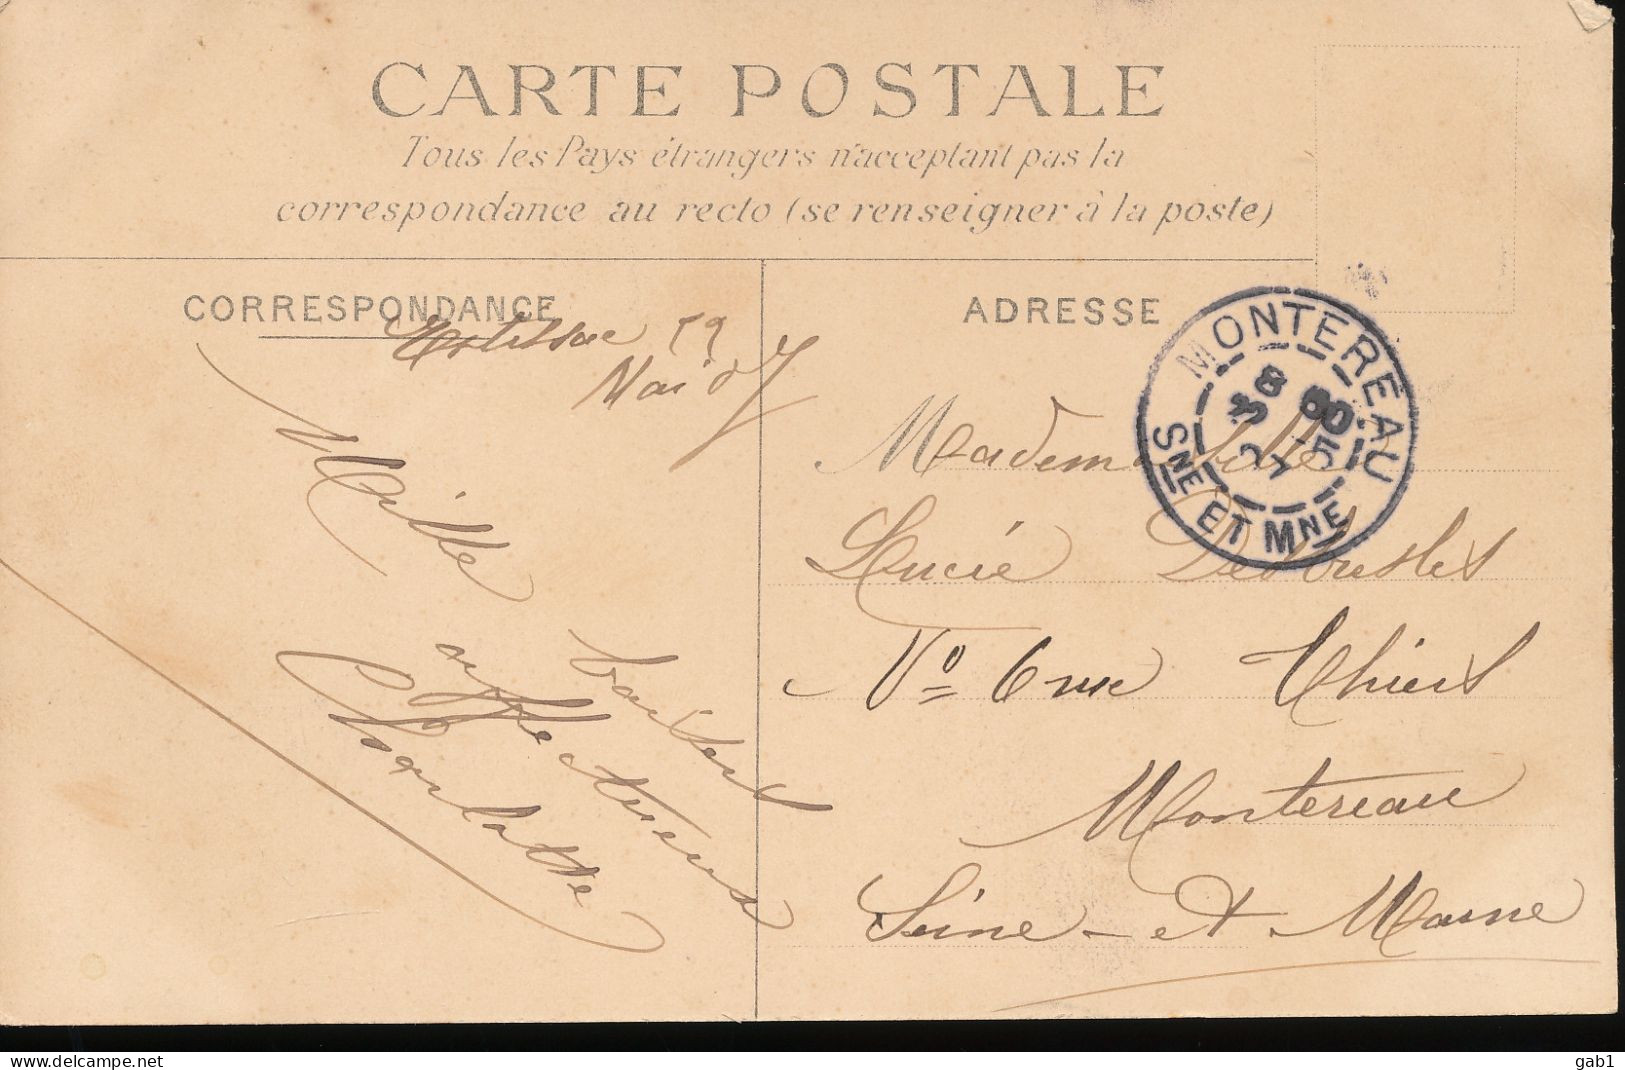 CARTE POSTALE
Tous les Pays étrangers n'acceptant pas la
correspondance au recto (se renseigner à la poste)
CORRESPONDANCE
ADRESSE
Mai 07
Mille
baisers
affectueux
MONTEREAU
SNE ET MNE
Mademoiselle
Lucie
No 6 rue Thiers
Montereau
Seine-et-Marne
www.delcampe.net
gab1